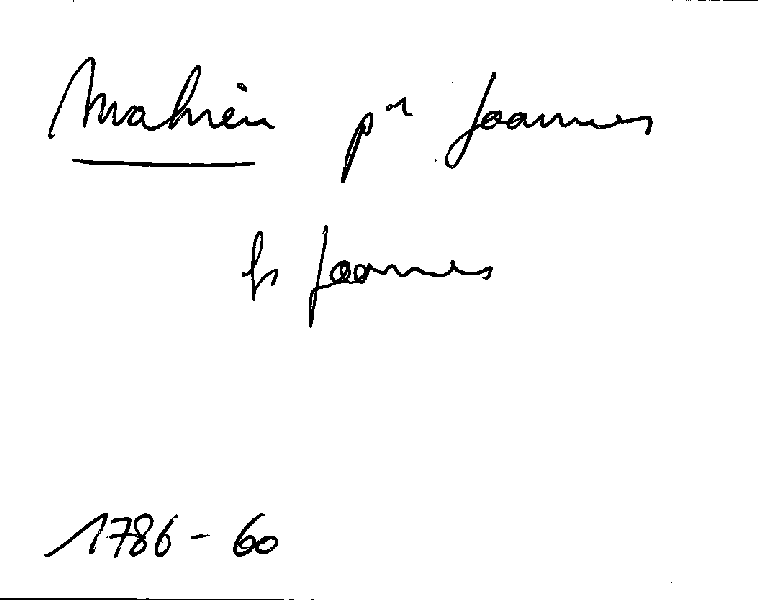 Mahieu pr Joannes
fs Joannes
1786 - 60